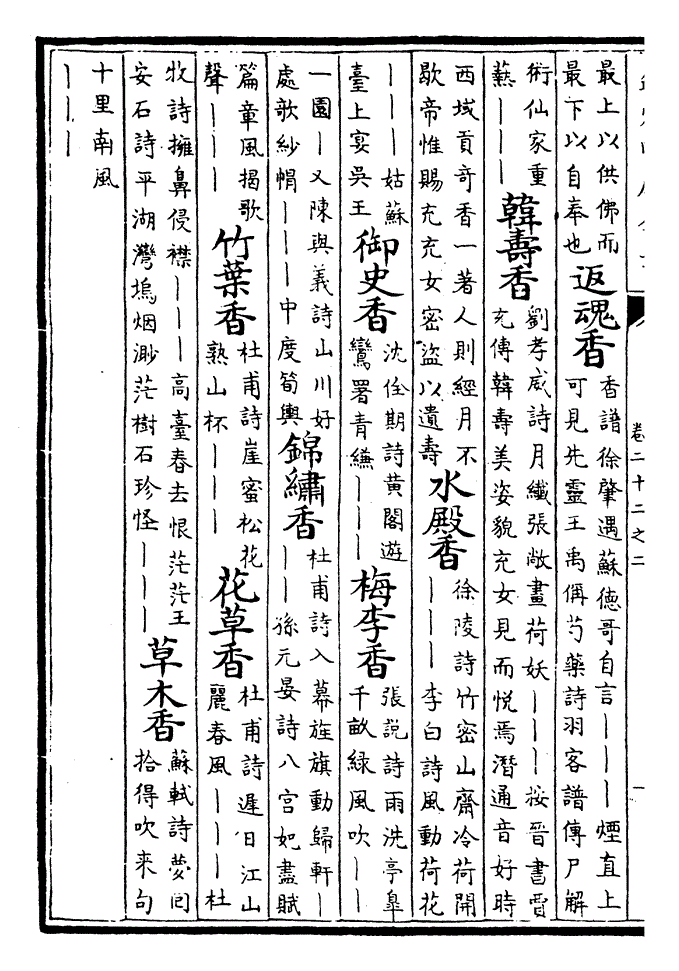 最上以供佛而
最下以自奉也
返魂香
香譜徐肇遇蘇徳哥自言｜｜｜煙直上
可見先靈王禹偁芍藥詩羽客譜傳尸解
術仙家重
爇｜｜｜
韓壽香
劉孝威詩月纖張敞畫荷妖｜｜｜按晉書賈
充傳韓壽美姿貌充女見而悦焉潛通音好時
西域貢竒香一著人則經月不
歇帝惟賜充充女密盜以遺壽
水殿香
徐陵詩竹密山齋冷荷開
｜｜｜李白詩風動荷花
｜｜｜姑蘇
臺上宴吳王
御史香
沈佺期詩黄閣遊
鸞署青縑｜｜｜
梅李香
張説詩雨洗亭臯
千畝緑風吹｜｜
一園｜又陳與義詩山川好
處歌紗㡌｜｜｜中度筍輿
錦繡香
杜甫詩入幕旌旗動歸軒｜
｜｜孫元晏詩八宫妃盡賦
篇章風揭歌
聲｜｜｜
竹葉香
杜甫詩崖蜜松花
熟山杯｜｜｜
花草香
杜甫詩遲日江山
麗春風｜｜｜杜
牧詩擁鼻侵襟｜｜｜高臺春去恨茫茫王
安石詩平湖灣塢烟渺茫樹石珍怪｜｜｜
草木香
蘇軾詩夢囘
拾得吹来句
十里南風
｜｜｜
卷二十二之二
一